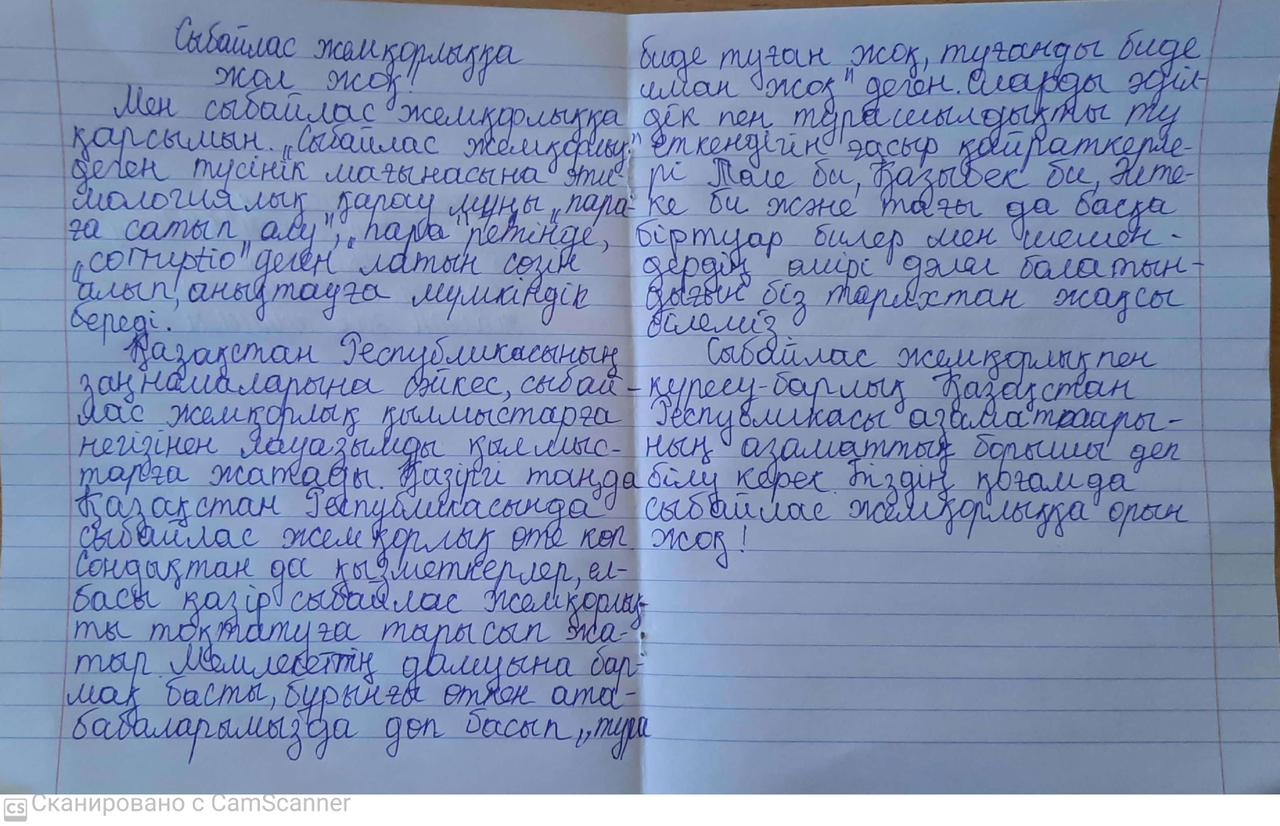 Сыбайлас жемқорлыққа
жол жоқ!
Мен сыбайлас жемқорлыққа
қарсымын. „Сыбайлас жемқорлық"
деген түсінік мағынасына эти-
мологиялық қарау мұны „пара-
ға сатып алу", „пара" ретінде,
„corruptio" деген латын сөзін
алып, анықтауға мүмкіндік
береді.
Қазақстан Республикасының
заңнамаларына сәйкес, сыбай-
лас жемқорлық қылмыстарға
негізінен лауазымды қылмыс-
тарға жатады. Қазіргі таңда
Қазақстан Республикасында
сыбайлас жемқорлық өте көп.
Сондықтан да қызметкерлер, ел-
басы қазір сыбайлас жемқорлық-
ты тоқтатуға тырысып жа-
тыр. Мемлекеттің дамуына бар-
мақ басты, бұрынғы өткен ата-
бабаларымызда дөп басып „тура
биде туған жоқ, туғанды биде
иман жоқ" деген. Оларды әділ-
дік пен турашылдықты ту
еткендігін ғасыр қайраткерле-
рі Төле би, Қазыбек би, Әйте-
ке би және тағы да басқа
біртуар билер мен шешен-
дердің өмірі дәлел болатын-
дығын біз тарихтан жақсы
білеміз
Сыбайлас жемқорлықпен
күресу-барлық Қазақстан
Республикасы азаматтары-
ның азаматтық борышы деп
білу керек. Біздің қоғамда
сыбайлас жемқорлыққа орын
жоқ!
CS Сканировано с CamScanner